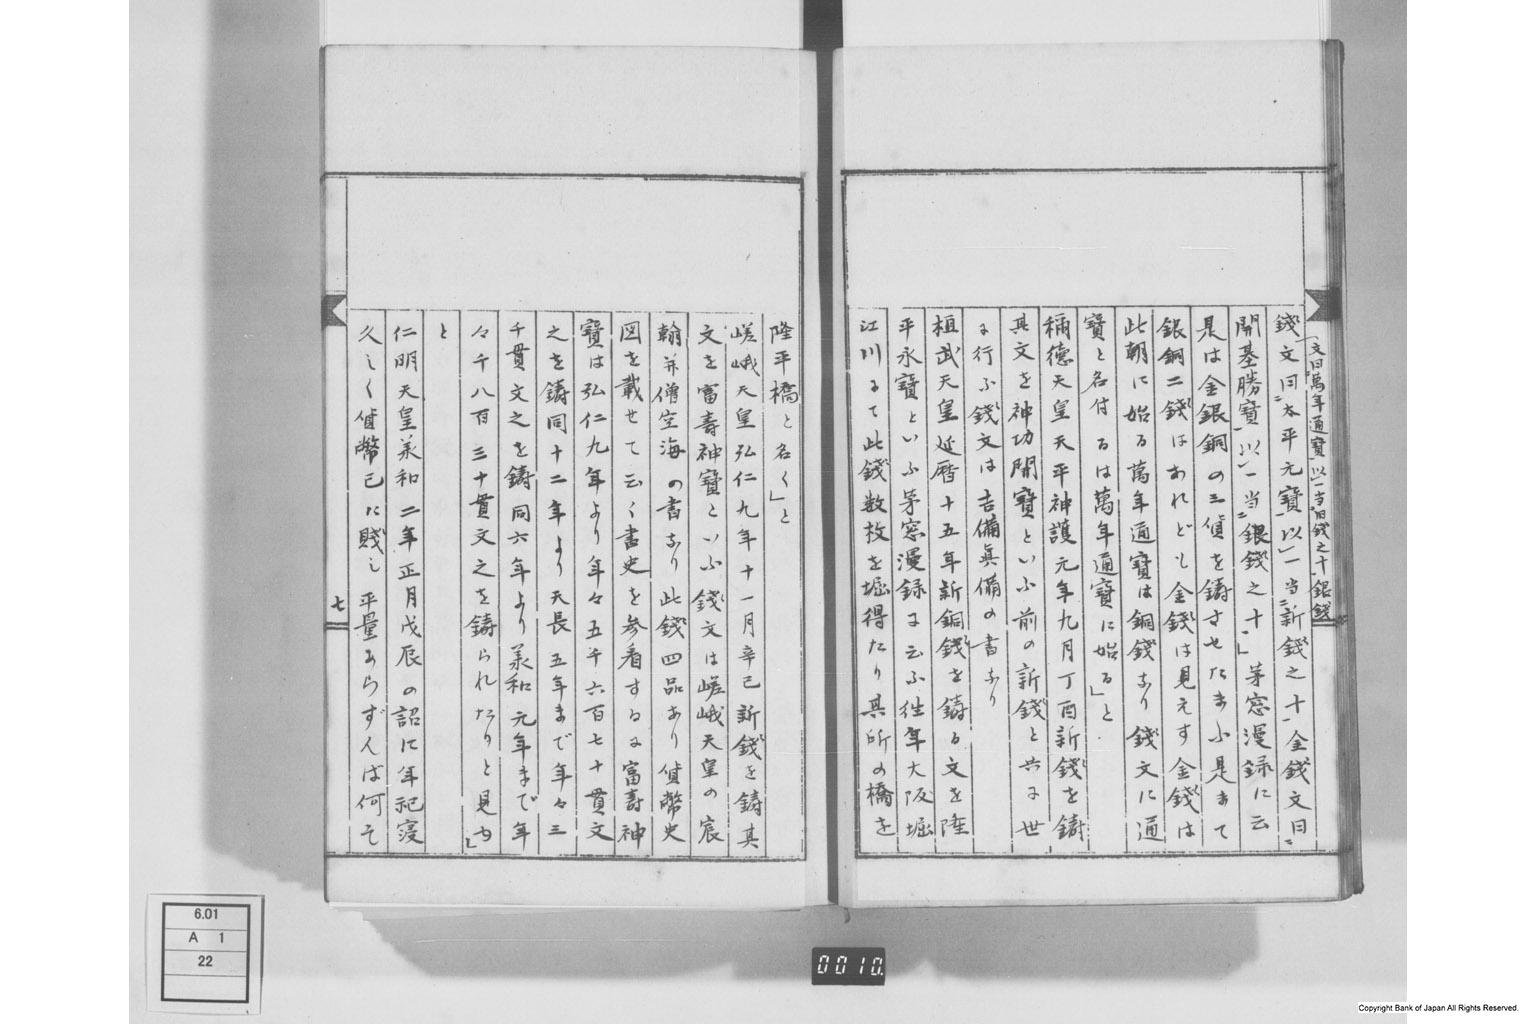 「文曰萬年通寶以一当旧錢之十銀錢
錢文曰大平元寶以一当新錢之十金錢文曰
開基勝寶以一当銀錢之十」茅窓漫録に云
是は金銀銅の三貨を鋳させたまふ是まて
銀銅二錢はあれども金錢は見えす金錢は
此朝に始る萬年通寶は銅錢なり錢文に通
寶と名付るは萬年通寶に始る」と
稱德天皇天平神護元年九月丁酉新錢を鋳
其文を神功開寶といふ前の新錢と共に世
に行ふ錢文は吉備眞備の書なり
桓武天皇延暦十五年新銅錢を鋳る文を隆
平永寶といふ茅窓漫録に云ふ往年大阪堀
江川にて此錢数枚を堀得たり其所の橋を
隆平橋と名く」と
嵯峨天皇弘仁九年十一月辛巳新錢を鋳其
文を富壽神寶といふ錢文は嵯峨天皇の宸
翰并僧空海の書なり此錢四品あり貨幣史
図を載せて云く書史を参看するに富壽神
寶は弘仁九年より年々五千六百七十貫文
之を鋳同十二年より天長五年まで年々三
千貫文之を鋳同六年より羕和元年まで年
々千八百三十貫文之を鋳られたりと見ゆ」
と
仁明天皇羕和二年正月戊辰の詔に年祀寖
久しく貨幣已に賤し平量あらずんば何そ
七
6.01
A 1
22
0010.
Copyright Bank of Japan All Rights Reserved.